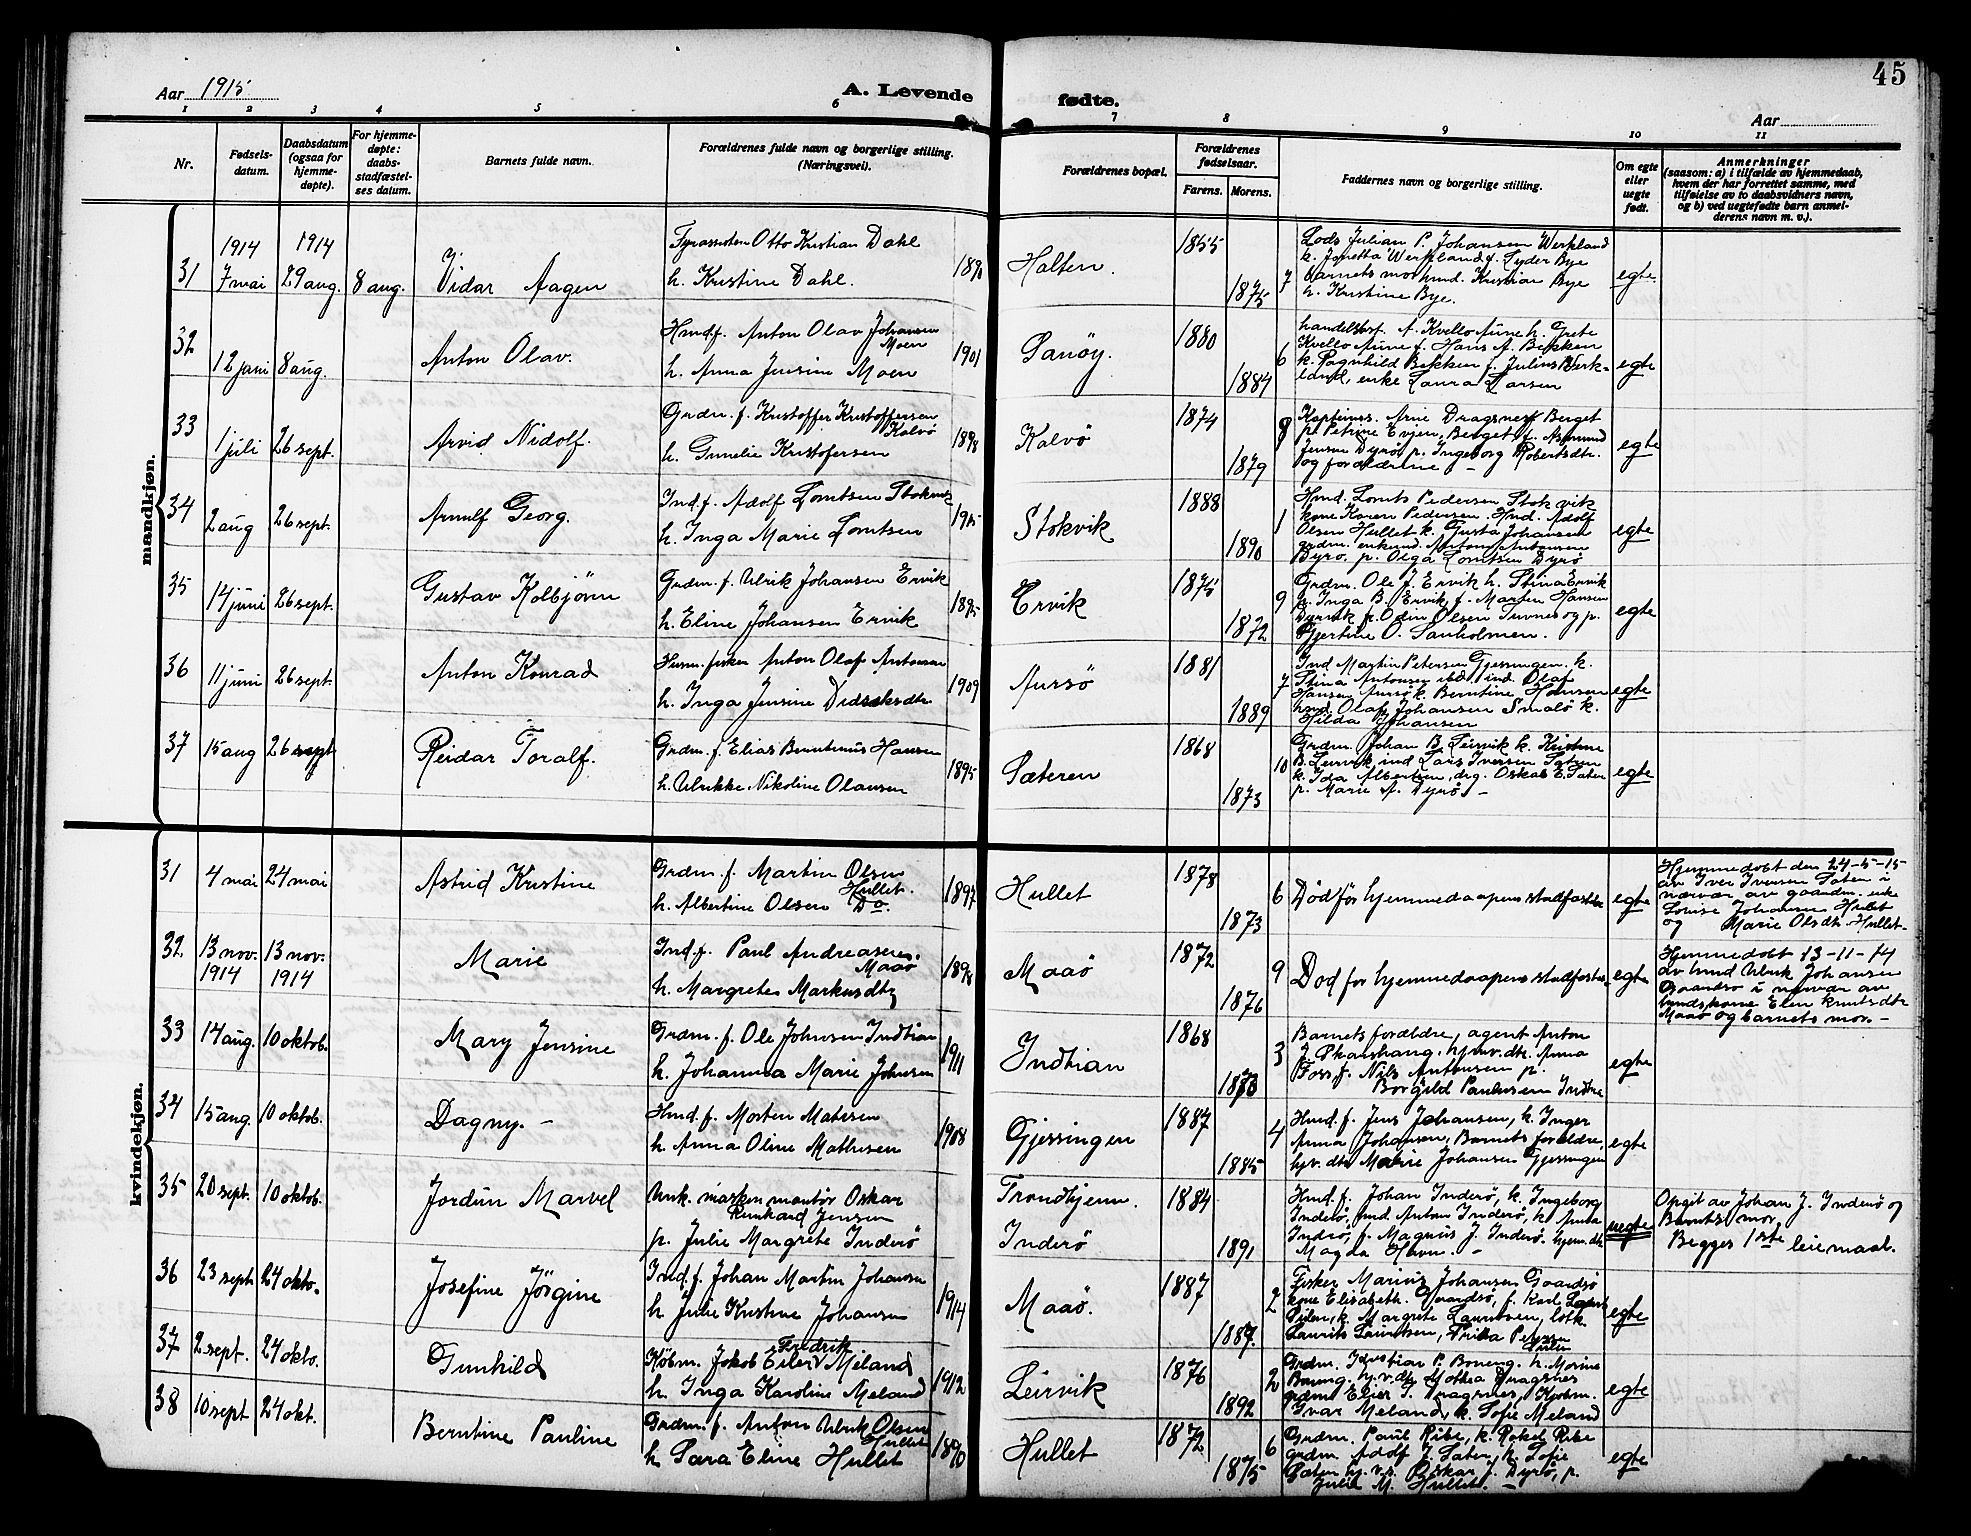 45
Aar 1915
A. Levende fødte.
Aar
1 2 3 4 5 6 7 8 9 10 11
Nr.
Fødsels-
datum.
Daabsdatum
(ogsaa for
hjemme-
døpte).
For hjemme-
døpte:
daabs-
stadfæstel-
ses datum.
Barnets fulde navn.
Forældrenes fulde navn og borgerlige stilling.
(Næringsvei).
Forældrenes bopæl.
Forældrenes
fødselsaar.
Farens. Morens.
Faddernes navn og borgerlige stilling.
Om egte
eller
uegte
født.
Anmerkninger
(saasom: a) i tilfælde av hjemmedaab,
hvem der har forrettet samme, med
tilføielse av to daabsvidners navn,
og b) ved uegtefødte barn anmel-
derens navn m. v.).
mandkjøn.
31 1914 7 mai 1914 29 aug. 8 aug. Vidar Aagen
Fyrassisten Otto Kristian Dahl
h. Kristine Dahl. 1890
Halten. 1855 1875 7
Lods Julian P. Johansen Werkland
k. Jonetta Werkland f. Syder Bye
Barnets mor hmd. Kristian Bye
h. Kristine Bye.
egte
32 12 juni 8 aug. Anton Olav.
Hmd. f. Anton Olav Johansen
Moen
h. Anna Jensine Moen 1901
Sanöy. 1880 1884 6
handelsbest. A. Kvello Aune h. Grete
Kvello Aune f. Hans A. Bekken
k. Ragnhild Bekken f. Julius Werk-
land, enke Laura Larsen
egte
33 1 juli 26 sept. Arvid Nidolf.
Grdm. f. Kristoffer Kristoffersen
Kalvö
h. Gunelie Kristofersen 1898
Kalvö 1874 1879 8
Kapteinss. Arne Dragsnes Berget
p. Petrine Evjen, Berget f. Asmund
Jensen Dyrö, p. Ingeborg Robertsdtr.
og forældrene –
egte
34 2 aug 26 sept. Arnulf Georg.
Ind. f. Adolf Lorntsen Stokvik
h. Inga Marie Lorntsen 1915
Stokvik 1888 1890 1
Hmd. Lornts Pedersen Stokvik
kone Karen Pedersen. Hmd. Adolf
Olsen Hullet k. Gusta Johansen
grdm. enkemd. Anton Antonsen
Dyrö, p. Olga Lorntsen Dyrö
egte
35 14 juni 26 sept. Gustav Kolbjörn
Grdm. f. Ulrik Johansen Ervik
h. Eline Johansen Ervik 1895
Ervik 1875 1872 9
Grdm. Ole J. Ervik h. Stina Ervik
p. Inga B. Ervik f. Marten Hansen
Dyrvik p. Odin Olsen og p.
Gjertine O. Sanholmen.
egte
36 11 juni 26 sept. Anton Konrad
Husm. fisker Anton Olaf Antonsen
h. Inga Jensine Didriksdtr 1909
Aursö 1881 1889 7
Ind Martin Petersen Gjessingen. k.
Stina Antonsen ibd. ind. Olaf
Hansen Aursö k. Berntine Hansen
hmd. Olaf Johansen Smalö k.
Hilda Johansen
egte
37 15 aug 26 sept Reidar Toralf.
Grdm. f. Elias Berntinus Hansen
h. Ulrikke Nikoline Olausen 1895
Sæteren 1868 1873 10
Grdm. Johan B. Leirvik k. Kristine
B. Leirvik ind Lars Iversen Sæteren
k. Ida Albertsen, drg. Oskar E. Sæter
p. Marie A. Dyrö –
egte
kvindekjøn.
31 4 mai 24 mai Astrid Kristine
Grdm. f. Martin Olsen
Hullet.
h. Albertine Olsen Do. 1897
Hullet 1878 1873 6
Död för hjemmedaapens stadfæstelse
egte
Hjemmedöbt den 24-5-15
av Iver Iversen Sæter i
nærvær av gaardm. enke
Louise Johansen Hullet
og Marie Olsdtr. Hullet-
32 13 nov. 1914 13 nov. 1914 Marie
Ind. f. Paul Andreasen.
Maaö
h. Margrete Markusdtr 1898
Maaö 1872 1876 9
Död for hjemmedaapens stadfæstelse
egte
Hjemmedöbt 13-11-14
av hmd Ulrik Johansen
Gaardsö i nærvær av
hmdskone Elen Knutsdtr
Maaö og barnets mor. –
33 14 aug. 10 oktob. Mary Jensine
Grdm. f. Ole Johnsen Indtian
h. Johanna Marie Johnsen 1911
Indtian 1868 1873 3
Barnets forældre, agent Anton
J. Skanshang. hjmv. dtr. Anna
Foss. f. Nils Antonsen p.
Borghild Paulsen Indtian
egte
34 15 aug. 10 oktob. Dagny. –
Hmd. f. Morten Matisen
h. Anna Oline Mathisen 1908
Gjessingen 1887 1885 4
Hmd. f. Jens Johansen, k. Inger
Anna Johansen, Barnets forældre,
hjv. dtr Marie Johansen Gjessingen
egte
35 20 sept. 10 oktob. Jordun Marvel
Unk. maskinmontör Oskar
Reinhard Jensen
p. Julie Margrete Inderö
Trondhjem. Inderö 1884 1891
Hmd. f. Johan Inderö, k. Ingeborg
Inderö, hmd Anton Inderö, k. Anna
Inderö, f. Magnus J. Inderö. hjem. dtr
Magda Havn. –
uegte
Opgit av Johan J. Inderö og
Barnets mor.
Begges 1ste leiemaal.
36 23 sept. 24 okto. Josefine Jörgine
Ind. f. Johan Martin Johansen
h. Julie Kristine Johansen 1914
Maaö. 1887 1887. 2
Fisker Marius Johansen Gaardsö
kone Elisabeth. Gaardsö, f. Karl
k. Margrete Lauritsen,
Laurits Lauritsen,
egte
37 2 sept. 24 okto. Gunhild
Fredrik
Købm. Jakob Eilert Meland
h. Inga Karoline Meland 1912
Leirvik 1876 1892 2
Grdm. Kristian P. Boneng. h. Marine
Boneng. hj. v. dtr. Mathea Dragsnes
grdm Elier I. Dragsnes, Kjøbm.
Ivar Meland, k. Sofie Meland
egte
38 10 sept 24 okt. Berntine Pauline
Grdm. f. Anton Ulrik Olsen
Hullet
h Sara Eline Hullet 1890
Hullet 1872 1875 6
Grdm. Paul Ribe, k. Rakel Ribe
grdm Adolf J. Sæter, k. Sofie
Sæter hj. v. s. Oskar J. Dyrö, p.
Julie M. Hullet. –
egte